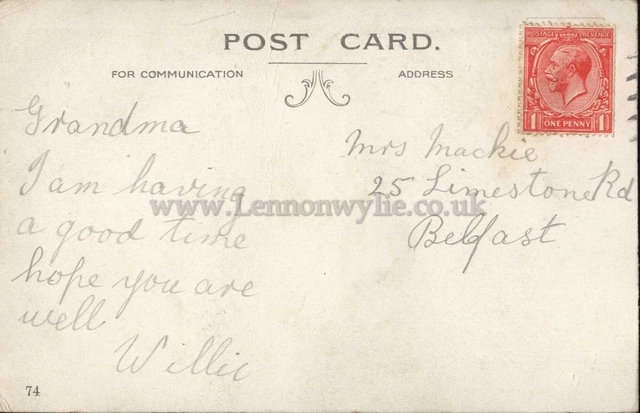 POST CARD.
FOR COMMUNICATION
ADDRESS
POSTAGE REVENUE
1 ONE PENNY 1
Grandma
I am having
a good time
hope you are
well
Willie
Mrs Mackie
25 Limestone Rd
Belfast
www.Lennonwylie.co.uk
74